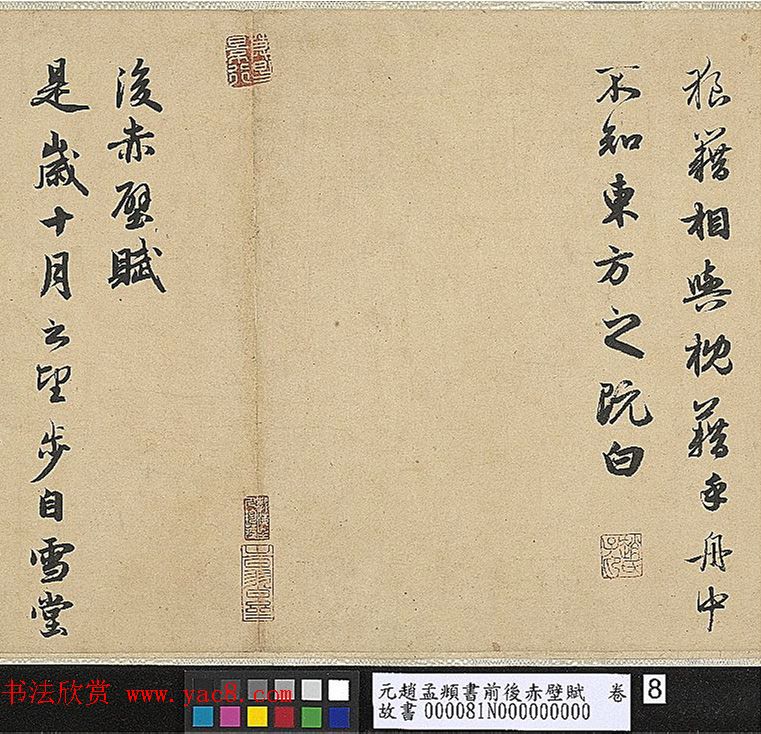 狼籍相與枕藉乎舟中
不知東方之既白
後赤壁賦
是歲十月之望步自雪堂
趙氏子昂
書法欣赏 www.yac8.com
元趙孟頫書前後赤壁賦 卷 8
故書 000081N000000000